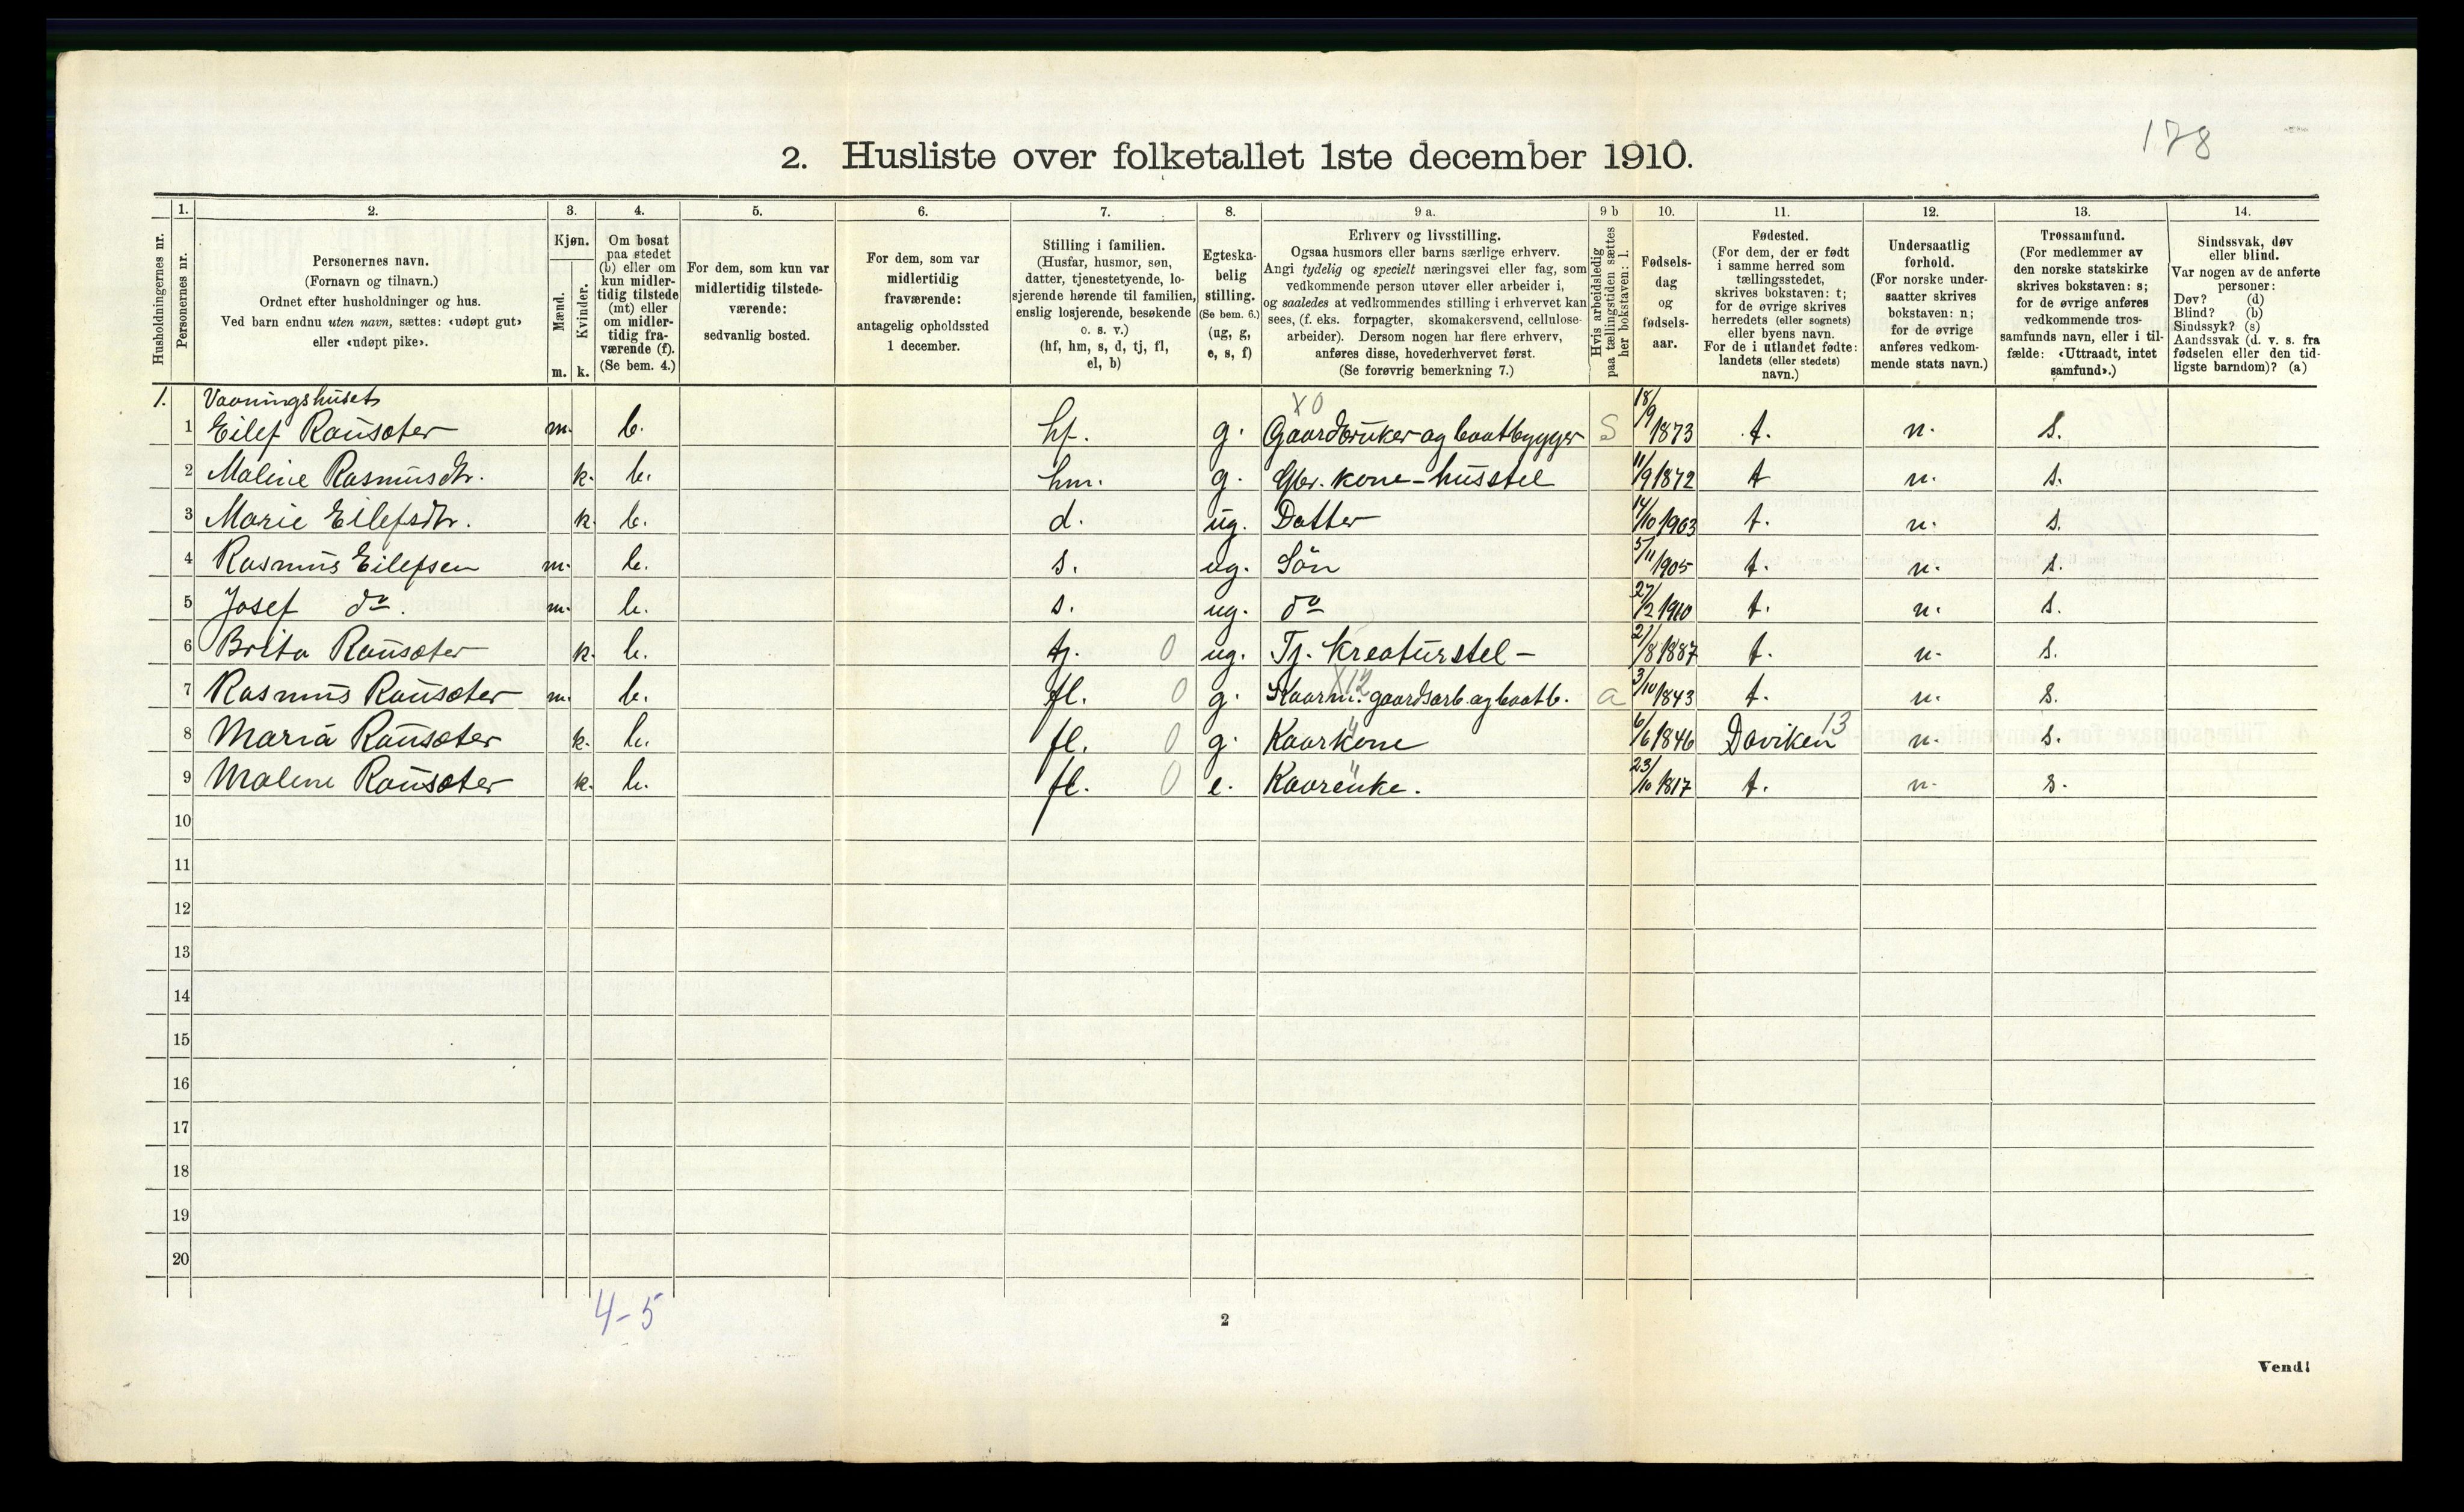 178
2. Husliste over folketallet 1ste december 1910.
Husholdningernes nr.
1.
Personernes nr.
2.
Personernes navn.
(Fornavn og tilnavn.)
Ordnet efter husholdninger og hus.
Ved barn endnu uten navn, sættes: «udøpt gut»
eller «udøpt pike».
3.
Kjøn.
Mænd.
Kvinder.
m. k.
4.
Om bosat
paa stedet
(b) eller om
kun midler-
tidig tilstede
(mt) eller
om midler-
tidig fra-
værende (f).
(Se bem. 4.)
5.
For dem, som kun var
midlertidig tilstede-
værende:
sedvanlig bosted.
6.
For dem, som var
midlertidig
fraværende:
antagelig opholdssted
1 december.
7.
Stilling i familien.
(Husfar, husmor, søn,
datter, tjenestetyende, lo-
sjerende hørende til familien,
enslig losjerende, besøkende
o. s. v.)
(hf, hm, s, d, tj, fl,
el, b)
8.
Egteska-
belig
stilling.
(Se bem. 6.)
(ug, g,
e, s, f)
9 a.
Erhverv og livsstilling.
Ogsaa husmors eller barns særlige erhverv.
Angi tydelig og specielt næringsvei eller fag, som
vedkommende person utøver eller arbeider i,
og saaledes at vedkommendes stilling i erhvervet kan
sees, (f. eks. forpagter, skomakersvend, cellulose-
arbeider). Dersom nogen har flere erhverv,
anføres disse, hovederhvervet først.
(Se forøvrig bemerkning 7.)
9 b
Hvis arbeidsledig
paa tællingstiden sættes
her bokstaven: l.
10.
Fødsels-
dag
og
fødsels-
aar.
11.
Fødested.
(For dem, der er født
i samme herred som
tællingsstedet,
skrives bokstaven: t;
for de øvrige skrives
herredets (eller sognets)
eller byens navn.
For de i utlandet fødte:
landets (eller stedets)
navn.)
12.
Undersaatlig
forhold.
(For norske under-
saatter skrives
bokstaven: n;
for de øvrige
anføres vedkom-
mende stats navn.)
13.
Trossamfund.
(For medlemmer av
den norske statskirke
skrives bokstaven: s;
for de øvrige anføres
vedkommende tros-
samfunds navn, eller i til-
fælde: «Uttraadt, intet
samfund».)
14.
Sindssvak, døv
eller blind.
Var nogen av de anførte
personer:
Døv? (d)
Blind? (b)
Sindssyk? (s)
Aandssvak (d. v. s. fra
fødselen eller den tid-
ligste barndom)? (a)
1. Vaaningshuset X0
1 Eilef Rausæter m. b. hf. g. Gaardbruker og baatbygger S 18/9 1873 t. n. s.
2 Maline Rasmusdtr. k. b. hm. g. Gbr. kone - husstel 11/9 1872 t n. s.
3 Marie Eilefsdtr. k. b. d. ug. Datter 14/10 1903 t. n. s.
4 Rasmus Eilefsen m. b. s. ug. Sön 5/11 1905 t. n. s.
5 Josef do. m. b. s. ug. do 27/2 1910 t. n. s.
6 Brita Rausæter k. b. tj. 0 ug. Tj. kreaturstel - 21/8 1887 t. n. s.
7 Rasmus Rausæter m. b. fl. 0 g. Kaarm. gaardsarb. og baatb. X12 a 3/10 1843 t. n. s.
8 Maria Rausæter k. b. fl. 0 g. Kaarkone " 6/6 1846 Daviken 13 n. s.
9 Malene Rausæter k. b. fl. 0 e. Kaarenke. " 23/10 1817 t. n. s.
10
11
12
13
14
15
16
17
18
19
20
4-5
2
Vend!